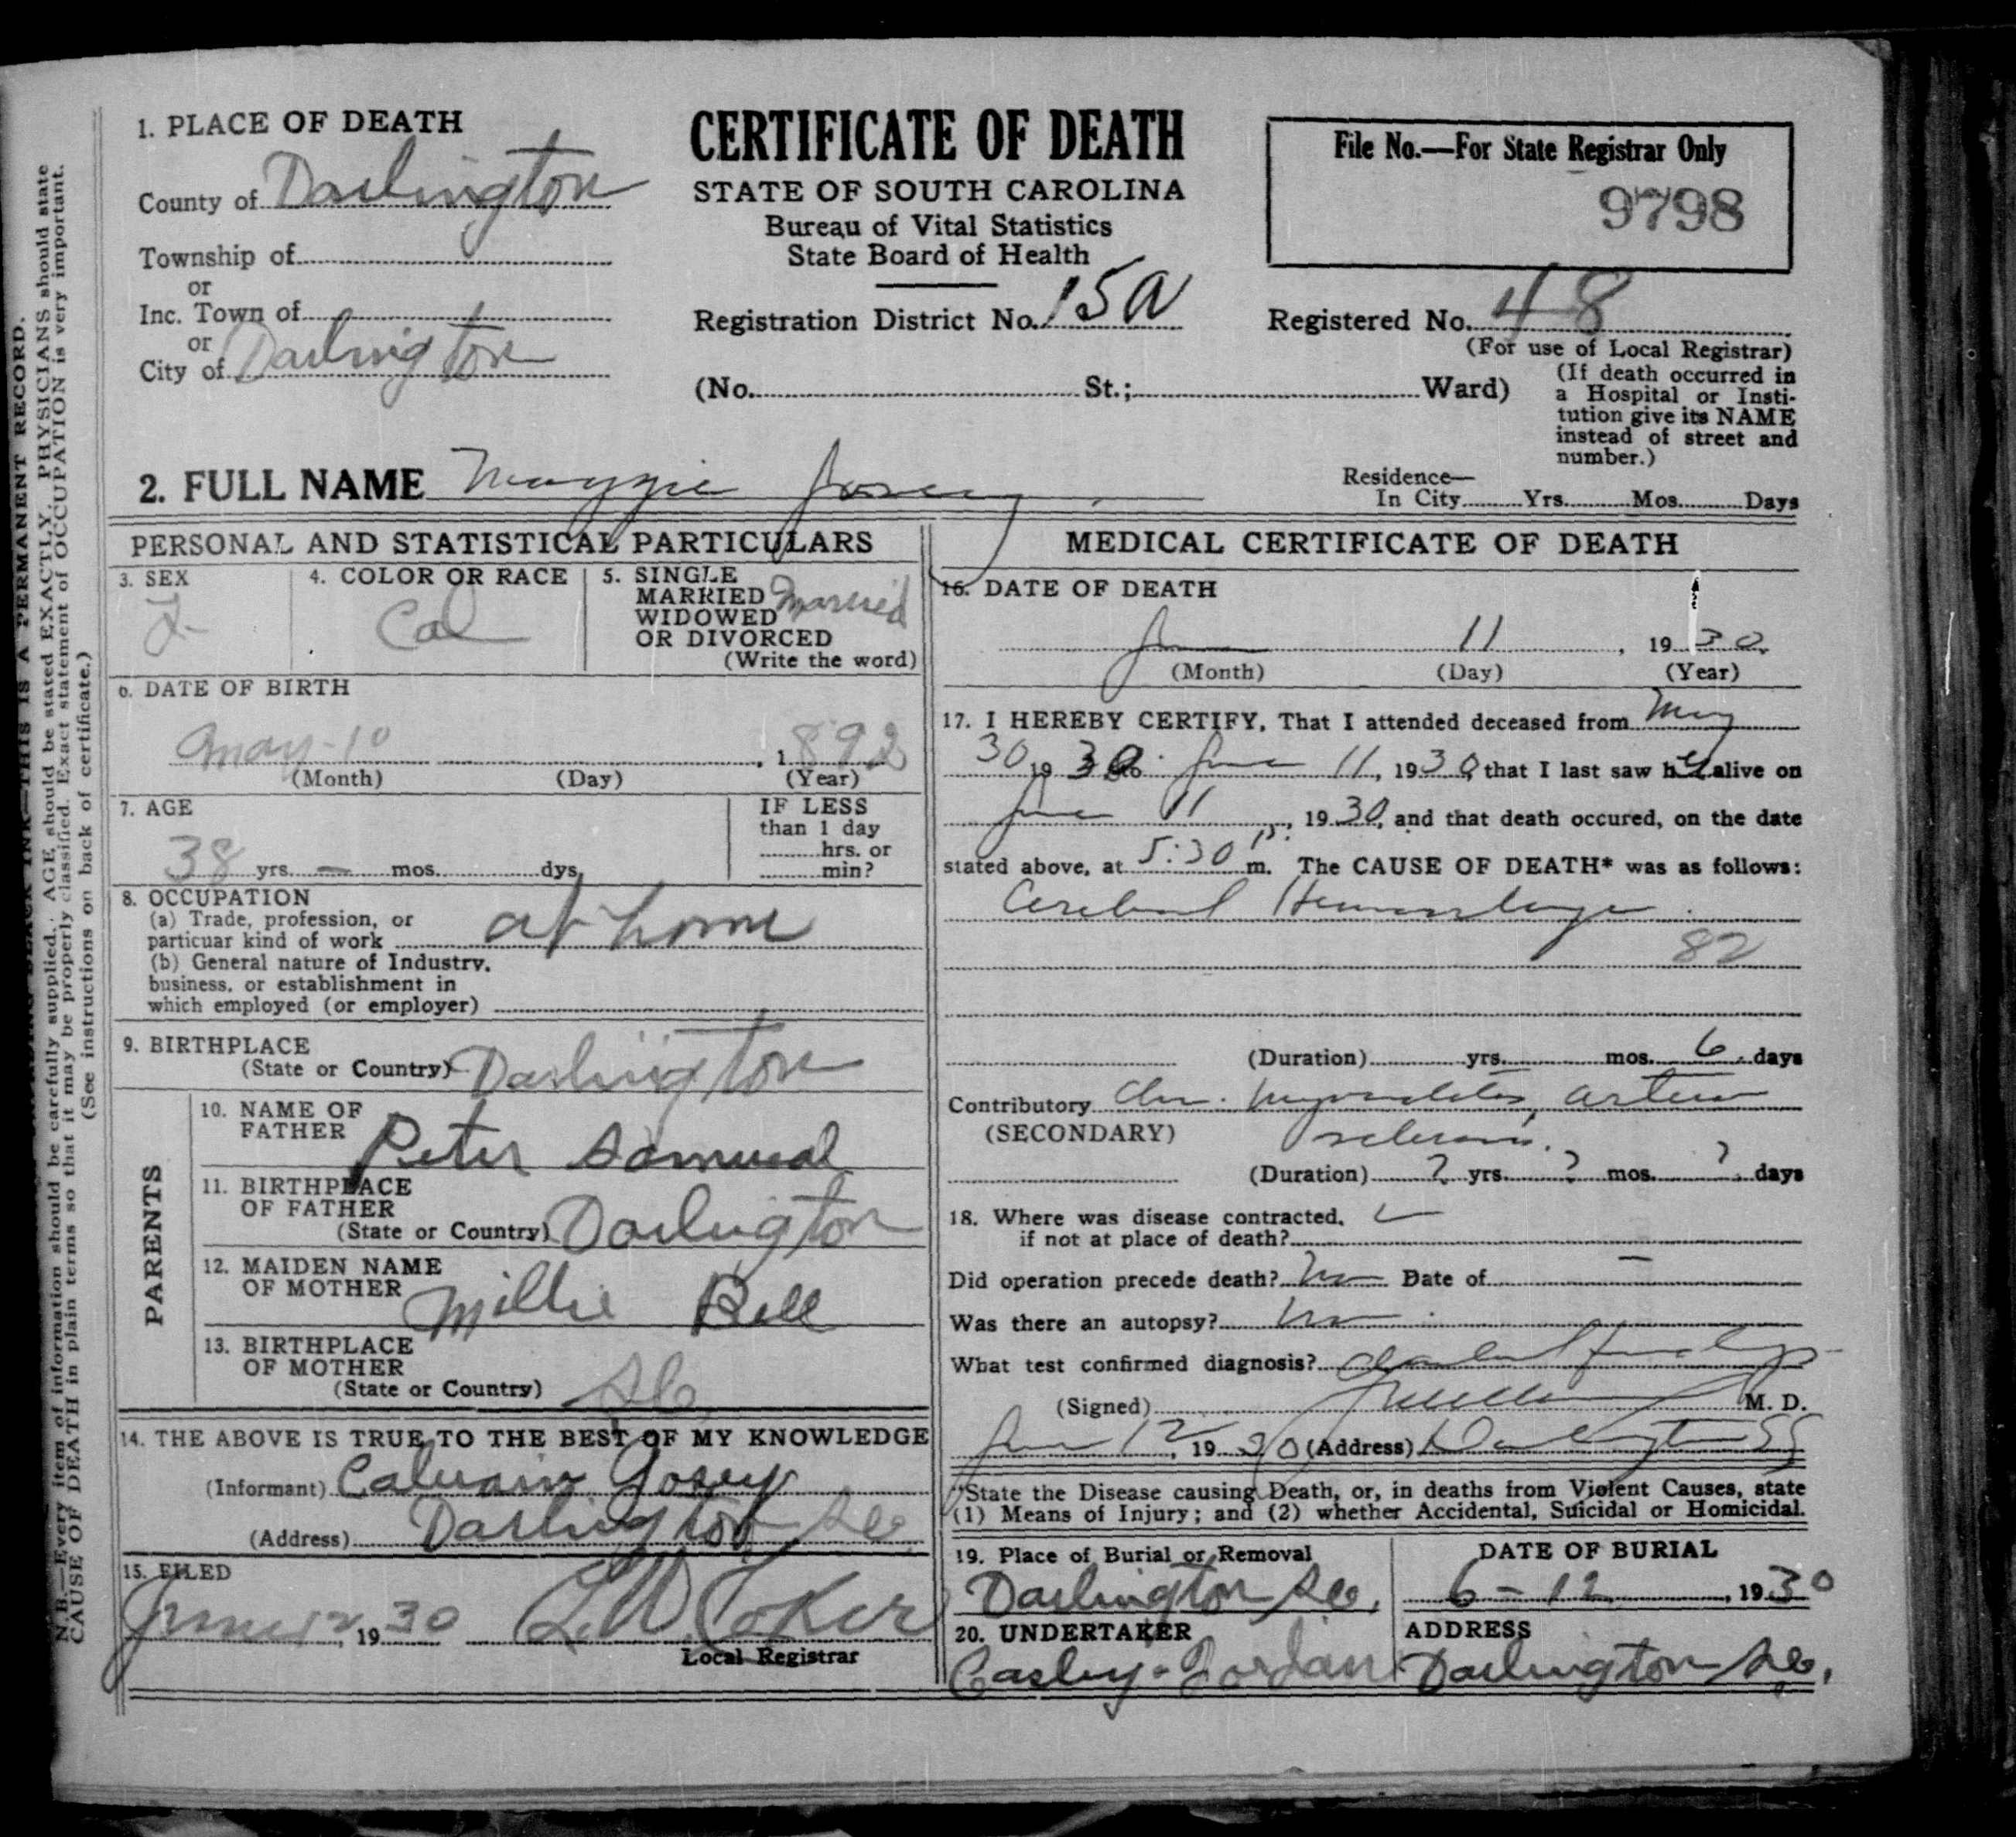 1. PLACE OF DEATH
County of Darlington
Township of
or
Inc. Town of
or
City of Darlington
CERTIFICATE OF DEATH
STATE OF SOUTH CAROLINA
Bureau of Vital Statistics
State Board of Health
Registration District No. 15A
(No. St.; Ward)
File No.—For State Registrar Only
9798
Registered No. 48
(For use of Local Registrar)
(If death occurred in
a Hospital or Insti-
tution give its NAME
instead of street and
number.)
2. FULL NAME Maggie Josey
Residence—
In City Yrs. Mos. Days
PERSONAL AND STATISTICAL PARTICULARS
3. SEX
F.
4. COLOR OR RACE
Col
5. SINGLE
MARRIED Married
WIDOWED
OR DIVORCED
(Write the word)
6. DATE OF BIRTH
May-10, 1892
(Month) (Day) (Year)
7. AGE
38 yrs. — mos. dys.
IF LESS
than 1 day
hrs. or
min?
8. OCCUPATION
(a) Trade, profession, or
particuar kind of work at home
(b) General nature of Industry,
business, or establishment in
which employed (or employer)
9. BIRTHPLACE
(State or Country) Darlington
PARENTS
10. NAME OF
FATHER Peter Samueal
11. BIRTHPLACE
OF FATHER
(State or Country) Darlington
12. MAIDEN NAME
OF MOTHER Millie Bell
13. BIRTHPLACE
OF MOTHER
(State or Country) S.C.
14. THE ABOVE IS TRUE TO THE BEST OF MY KNOWLEDGE
(Informant) Calvain Josey
(Address) Darlington S.C.
15. FILED
June 12, 1930 L.W. Coker
Local Registrar
MEDICAL CERTIFICATE OF DEATH
16. DATE OF DEATH
June 11, 1930.
(Month) (Day) (Year)
17. I HEREBY CERTIFY, That I attended deceased from May
30 1930 to June 11, 1930, that I last saw her alive on
June 11, 1930, and that death occured, on the date
stated above, at 5:30 P. m. The CAUSE OF DEATH* was as follows:
Cerebral Hemorrhage.
82
(Duration) yrs. mos. 6 days
Contributory Chr. Myocarditis, arterio
(SECONDARY) sclerosis.
(Duration) ? yrs. ? mos. ? days
18. Where was disease contracted,
if not at place of death?
Did operation precede death? no Date of —
Was there an autopsy? no
What test confirmed diagnosis?
(Signed) M. D.
June 12, 1930 (Address) Darlington SC
*State the Disease causing Death, or, in deaths from Violent Causes, state
(1) Means of Injury; and (2) whether Accidental, Suicidal or Homicidal.
19. Place of Burial or Removal
Darlington S.C.
DATE OF BURIAL
6-12, 1930
20. UNDERTAKER
Jordan
ADDRESS
Darlington S.C.
THIS IS A PERMANENT RECORD.
N. B.—Every item of information should be carefully supplied. AGE should be stated EXACTLY. PHYSICIANS should state
CAUSE OF DEATH in plain terms so that it may be properly classified. Exact statement of OCCUPATION is very important.
(See instructions on back of certificate.)